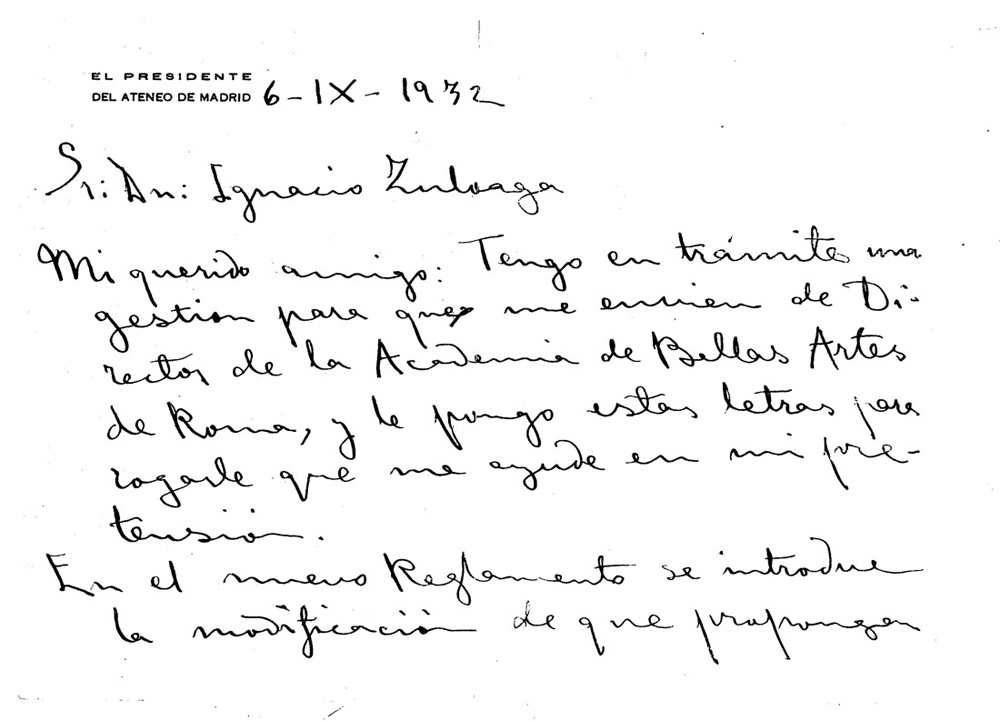 EL PRESIDENTE
DEL ATENEO DE MADRID 6-IX-1932
Sr: Dn: Ignacio Zuloaga
Mi querido amigo: Tengo en trámite una
gestion para que me envien de Di-
rector de la Academia de Bellas Artes
de Roma, y le pongo estas letras para
rogarle que me ayude en mi pre-
tensión.
En el nuevo Reglamento se introduce
la modificación de que propongan